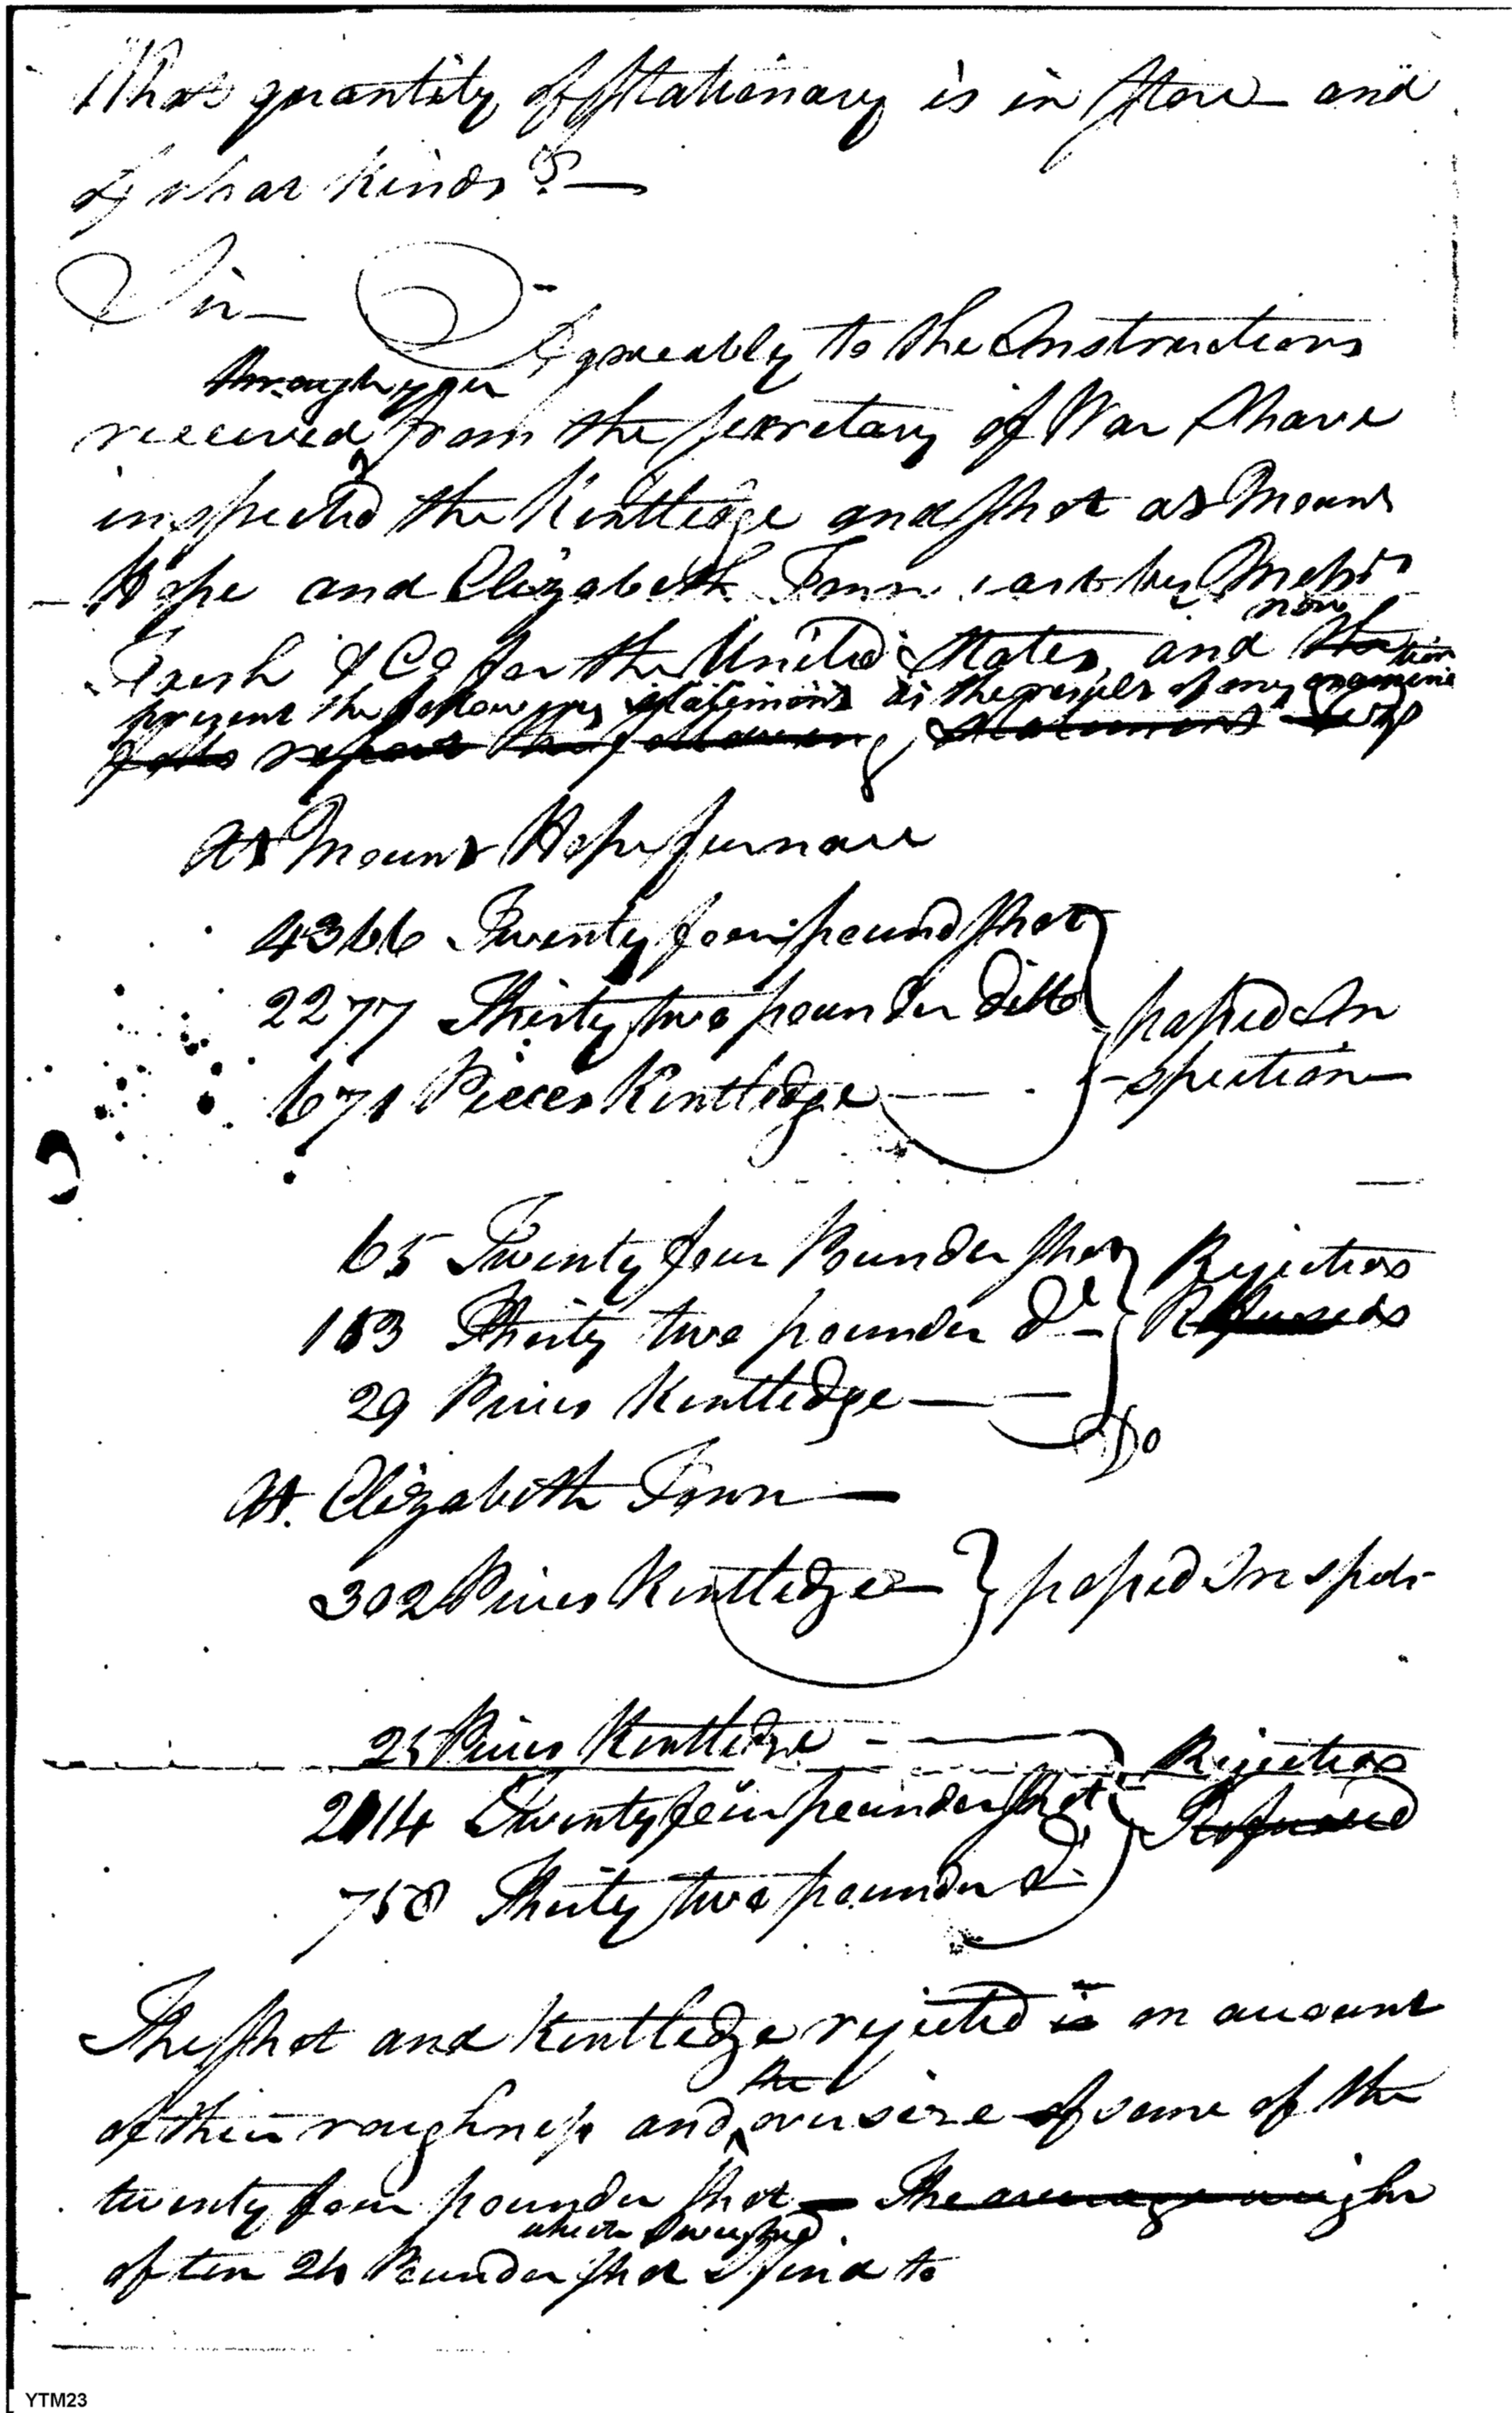 What quantity of Stationary is in Store and
of what kinds?—
Sir—
Agreeably to the Instructions
through you
received from the Secretary of War I have
inspected the Kentledge and Shot at Mount
Hope and Elizabeth Town cast by Messrs
now
& Co for the United States, and
tion
present the following statement as the result of my examina
report the following statement
At Mount Hope furnace
4366 Twenty four pound Shot
2277 Thirty two pounder ditto } passed In
671 Pieces Kentledge — - -spection—
65 Twenty four Pounder Shot } Rejected
153 Thirty two pounder do – Refused
29 Pieces Kentledge — —
Do
At. Elizabeth Town—
302 Pieces Kentledge— } passed Inspectn
25 Pieces Kentledge - — } Rejected
2014 Twenty four pounder Shot Refused
758 Thirty two pounder do
The Shot and Kentledge rejected is on account
the
of their roughness and oversize of some of the
twenty four pounder Shot — The average weight
which I weighed
of ten 24 Pounder Shot I find to
YTM23